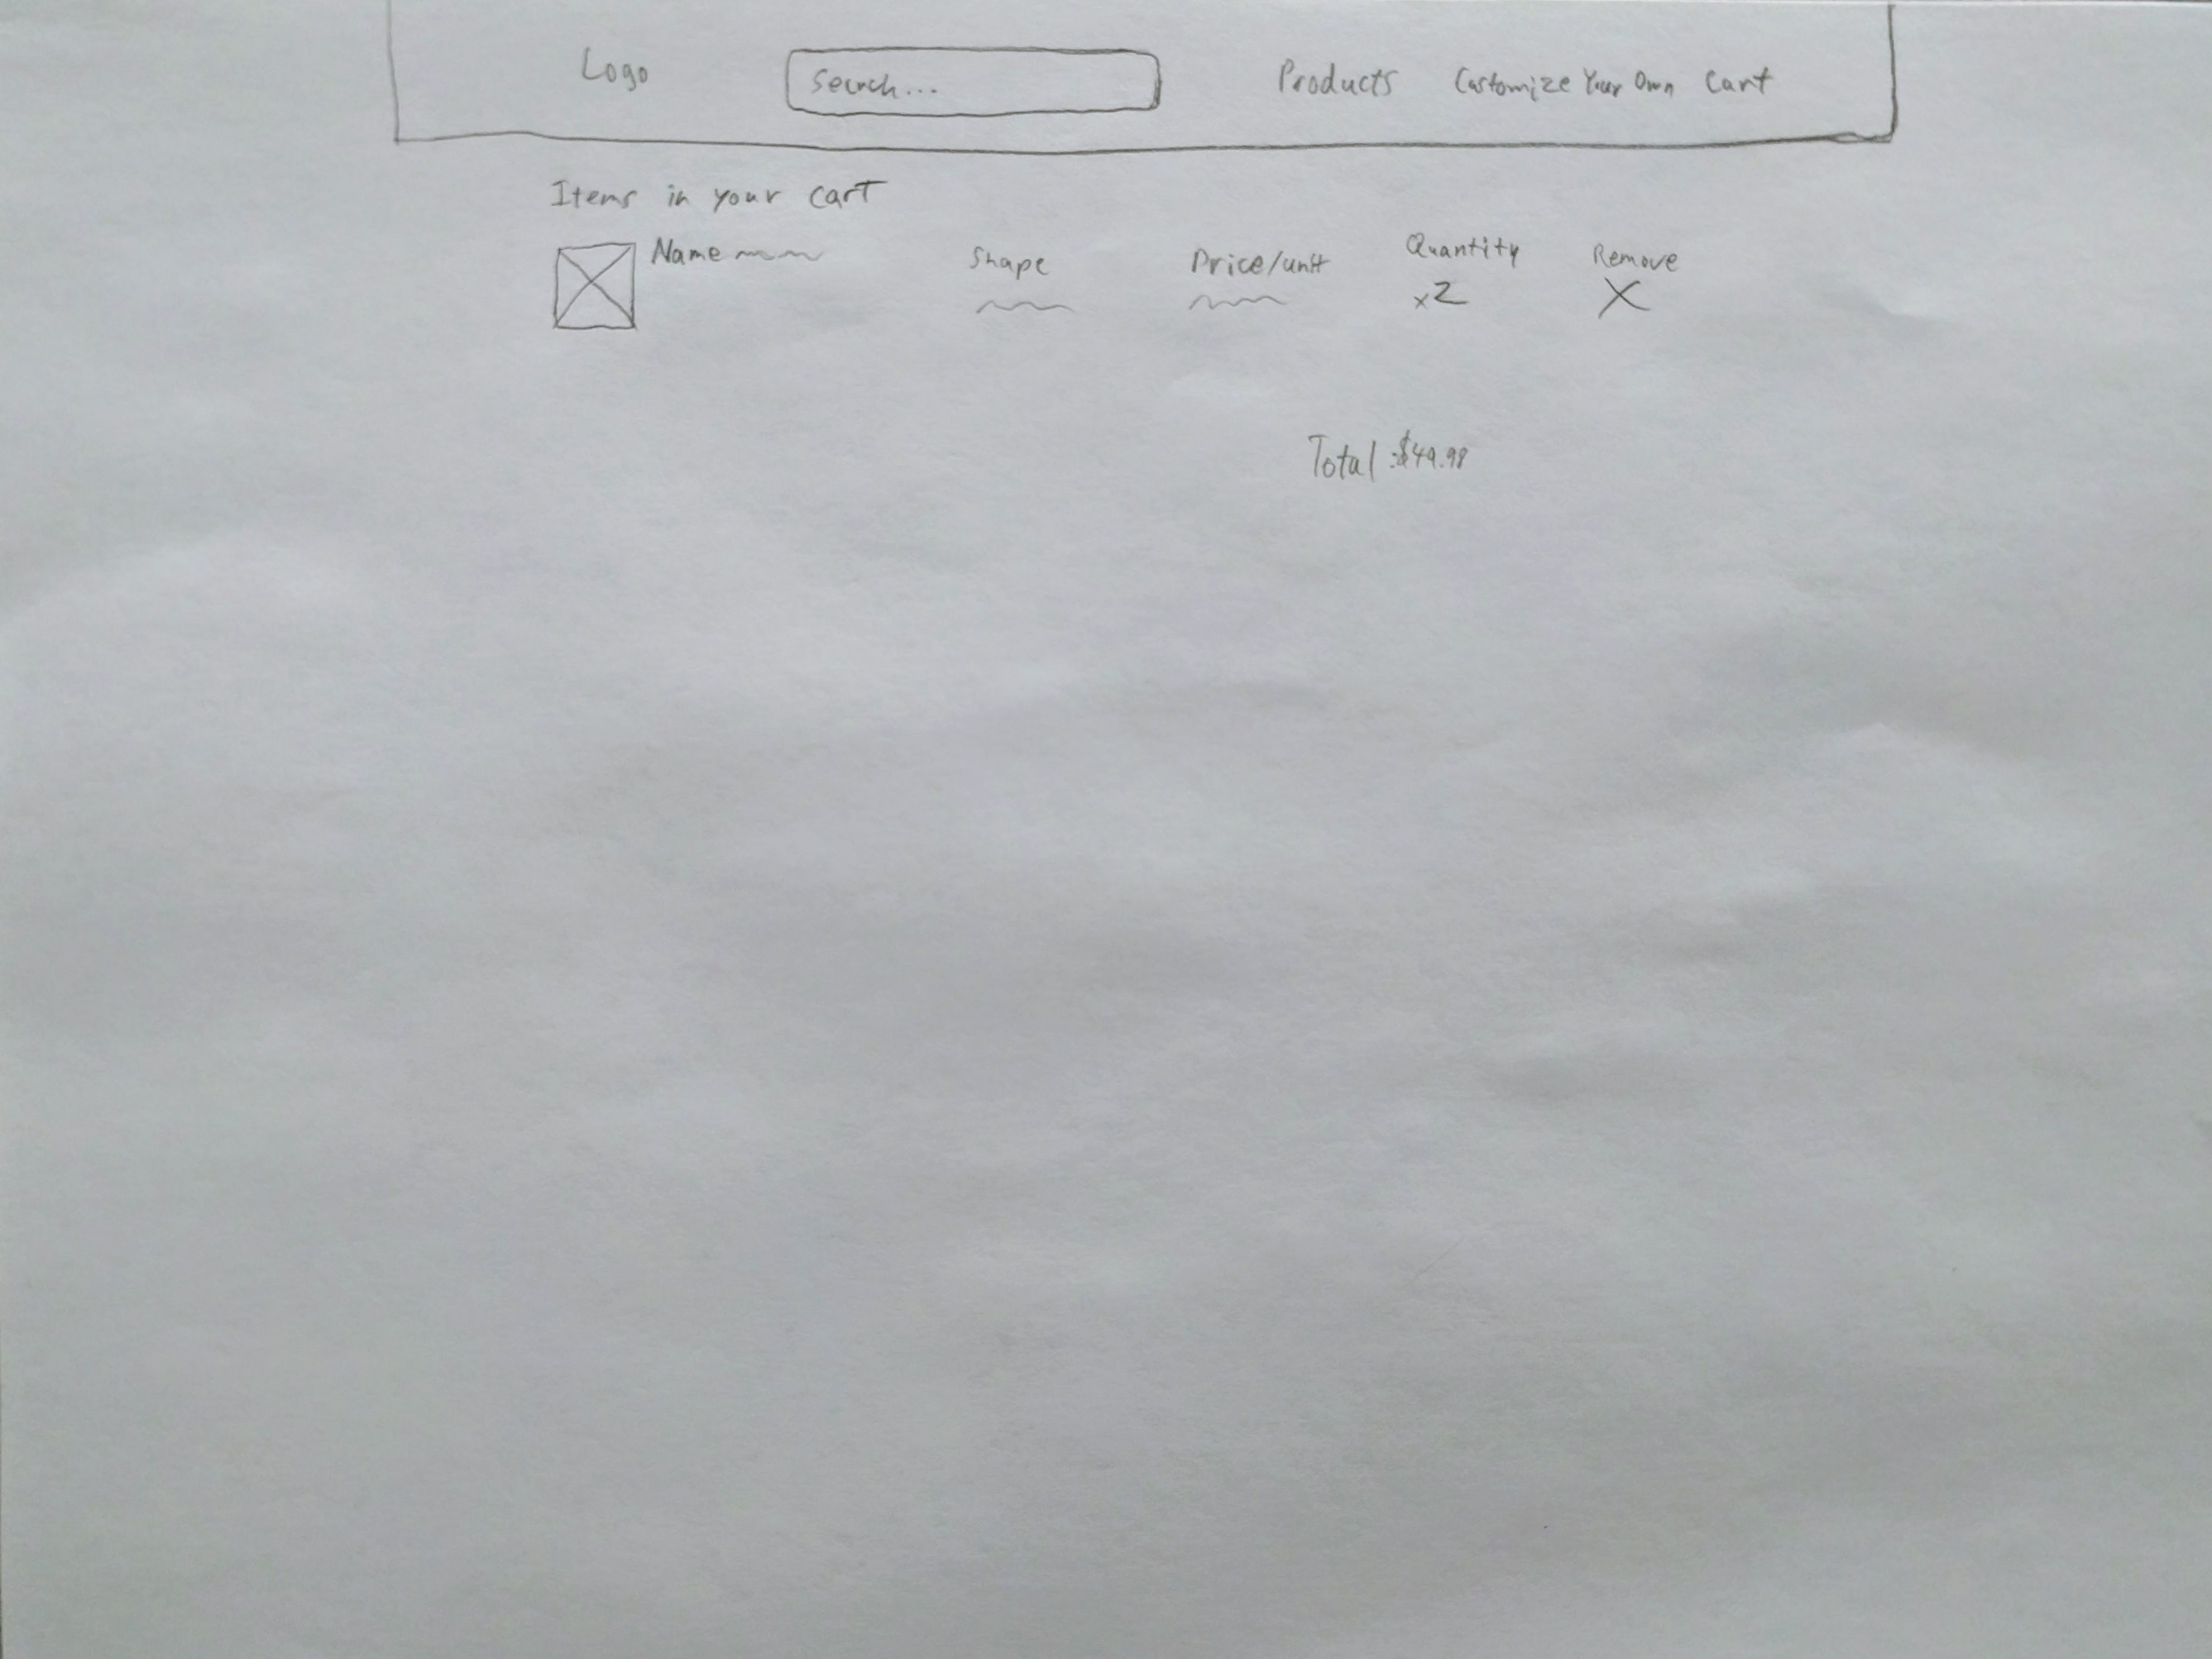 Logo
Search...
Products Customize Your Own Cart
Items in your cart
Name
Shape
Price/unit
Quantity
x2
Remove
X
Total:$49.98